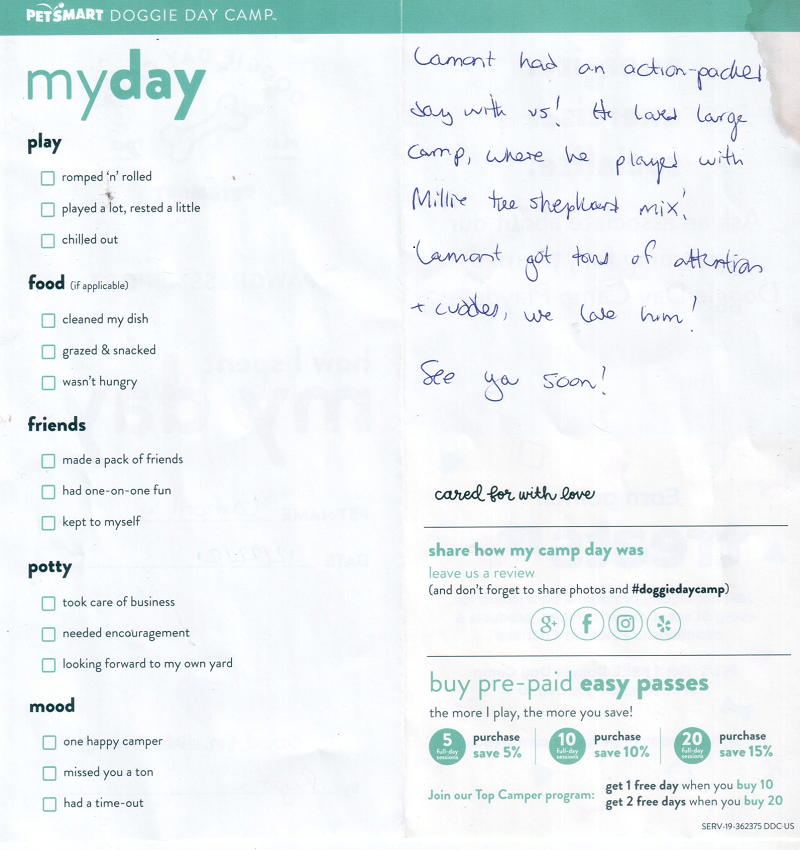 PETSMART DOGGIE DAY CAMP
myday
play
romped 'n' rolled
played a lot, rested a little
chilled out
food (if applicable)
cleaned my dish
grazed & snacked
wasn't hungry
friends
made a pack of friends
had one-on-one fun
kept to myself
potty
took care of business
needed encouragement
looking forward to my own yard
mood
one happy camper
missed you a ton
had a time-out
Lamont had an action-packed
day with us! He loved large
camp, where he played with
Millie the shephard mix!
Lamont got tons of attention
+ cuddles, we love him!
See ya soon!
cared for with love
share how my camp day was
leave us a review
(and don't forget to share photos and #doggiedaycamp)
g+ f
buy pre-paid easy passes
the more I play, the more you save!
5 full-day sessions purchase save 5%
10 full-day sessions purchase save 10%
20 full-day sessions purchase save 15%
Join our Top Camper program:
get 1 free day when you buy 10
get 2 free days when you buy 20
SERV-19-362375 DDC US